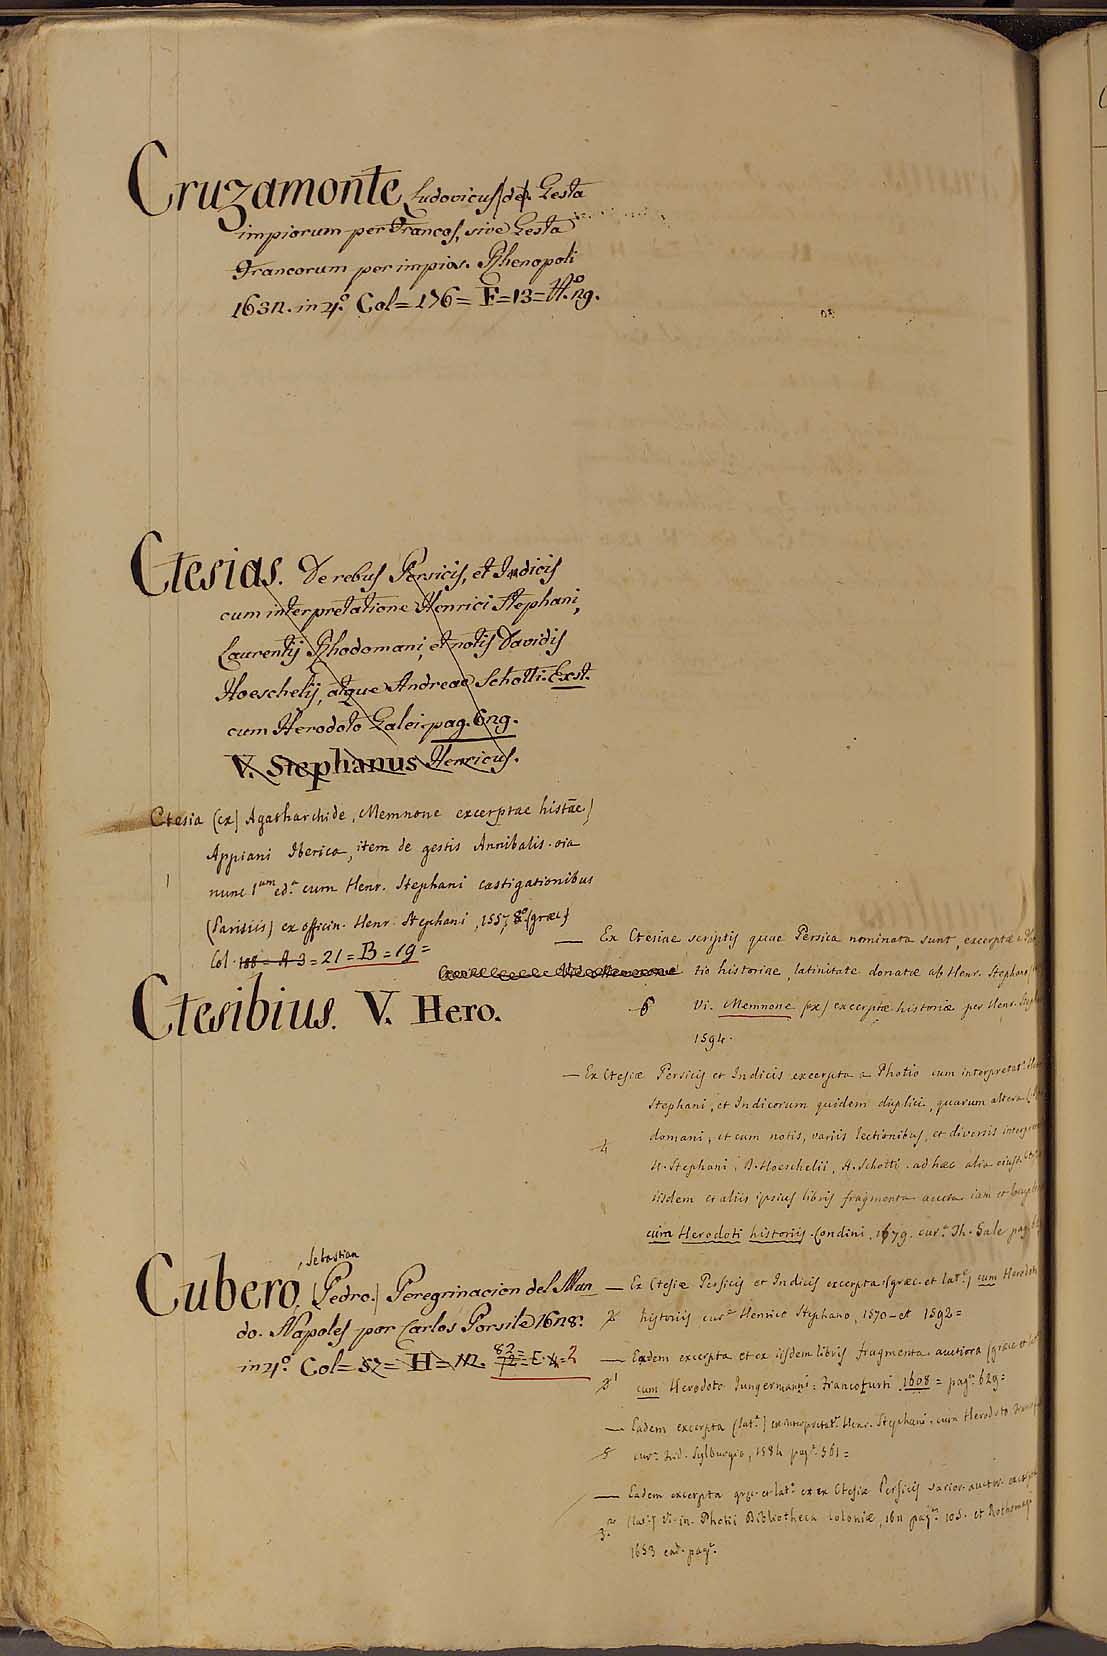 Cruzamonte Ludovicus (de). Gesta
impiorum per Francos, sive Gesta
Francorum per impios. Rhenopoli
1632. in 4.º Col = 176 = F = 13 = H.º 29.
Ctesias. De rebus Persicis, et Indicis
cum interpretatione Henrici Stephani,
Laurentij Rhodomani, et notis Davidis
Hoeschelij, atque Andreae Schotti. Exst.
cum Herodoto Galei pag. 629.
V. Stephanus Henricus.
Ctesia (ex) Agatharchide, Memnone excerptae histae)
Appiani Iberica, item de gestis Annibalis oia
1 nunc 1um ed.ª cum Henr. Stephani castigationibus
(Parisiis) ex officin. Henr. Stephani, 1557, 8º (graec.)
Col. 188 = A 3 = 21 = B = 19 =
Ctesibius. V. Hero.
Cubero, Sebastian
(Pedro.) Peregrinacion del Mun
do. Napoles por Carlos Porsile 1628.
in 4.º Col = 57 = H = 82 =
— Ex Ctesiae scriptis quae Persica nominata sunt, excerptae a
tio historiae, latinitate donatae ab Henr. Stephano
6 Vi. Memnone (ex) excerptae historiae per Henr. Steph
1594.
— Ex Ctesiae Persicis et Indicis excerpta a Photio cum interpretat.e
Stephani, et Indicorum quidem duplici, quarum altera
4 domani, et cum notis, variis lectionibus, et diversis interpr
H. Stephani, D. Hoeschelii, A. Schotti. ad haec alia eiusd.
iisdem et aliis ipsius libris fragmenta aucta iam et
cum Herodoti historiis. Londini, 1679. cur.ª Th. Gale pag.
— Ex Ctesiae Persicis et Indicis excerpta (graec. et lat.e) cum Herodoti
2 historiis cur.e Henrico Stephano, 1570 - et 1592 =
— Eadem excerpta et ex iisdem libris fragmenta auctiora (graec. et lat.
cum Herodoto Jungermanni: Francofurti 1608 = pag.ª 629 =
— Eadem excerpta (lat.e) ex interpretat.e Henr. Stephani. cum Herodoto
5 cur.e Frid. Sylburgio, 1584 pag.ª 561 =
— Eadem excerpta graec. et lat.e ex Ctesiae Persicis
3 (lat.e) Vi. in. Photii Bibliotheca Coloniae, 1611 pag.ª 105. et Rothomagi
1653 ead. pag.ª